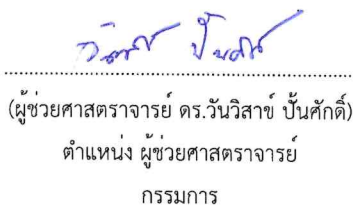 (ผู้ช่วยศาสตราจารย์ ดร.วันวิสาข์ ปั้นศักดิ์)
ตำแหน่ง ผู้ช่วยศาสตราจารย์
กรรมการ